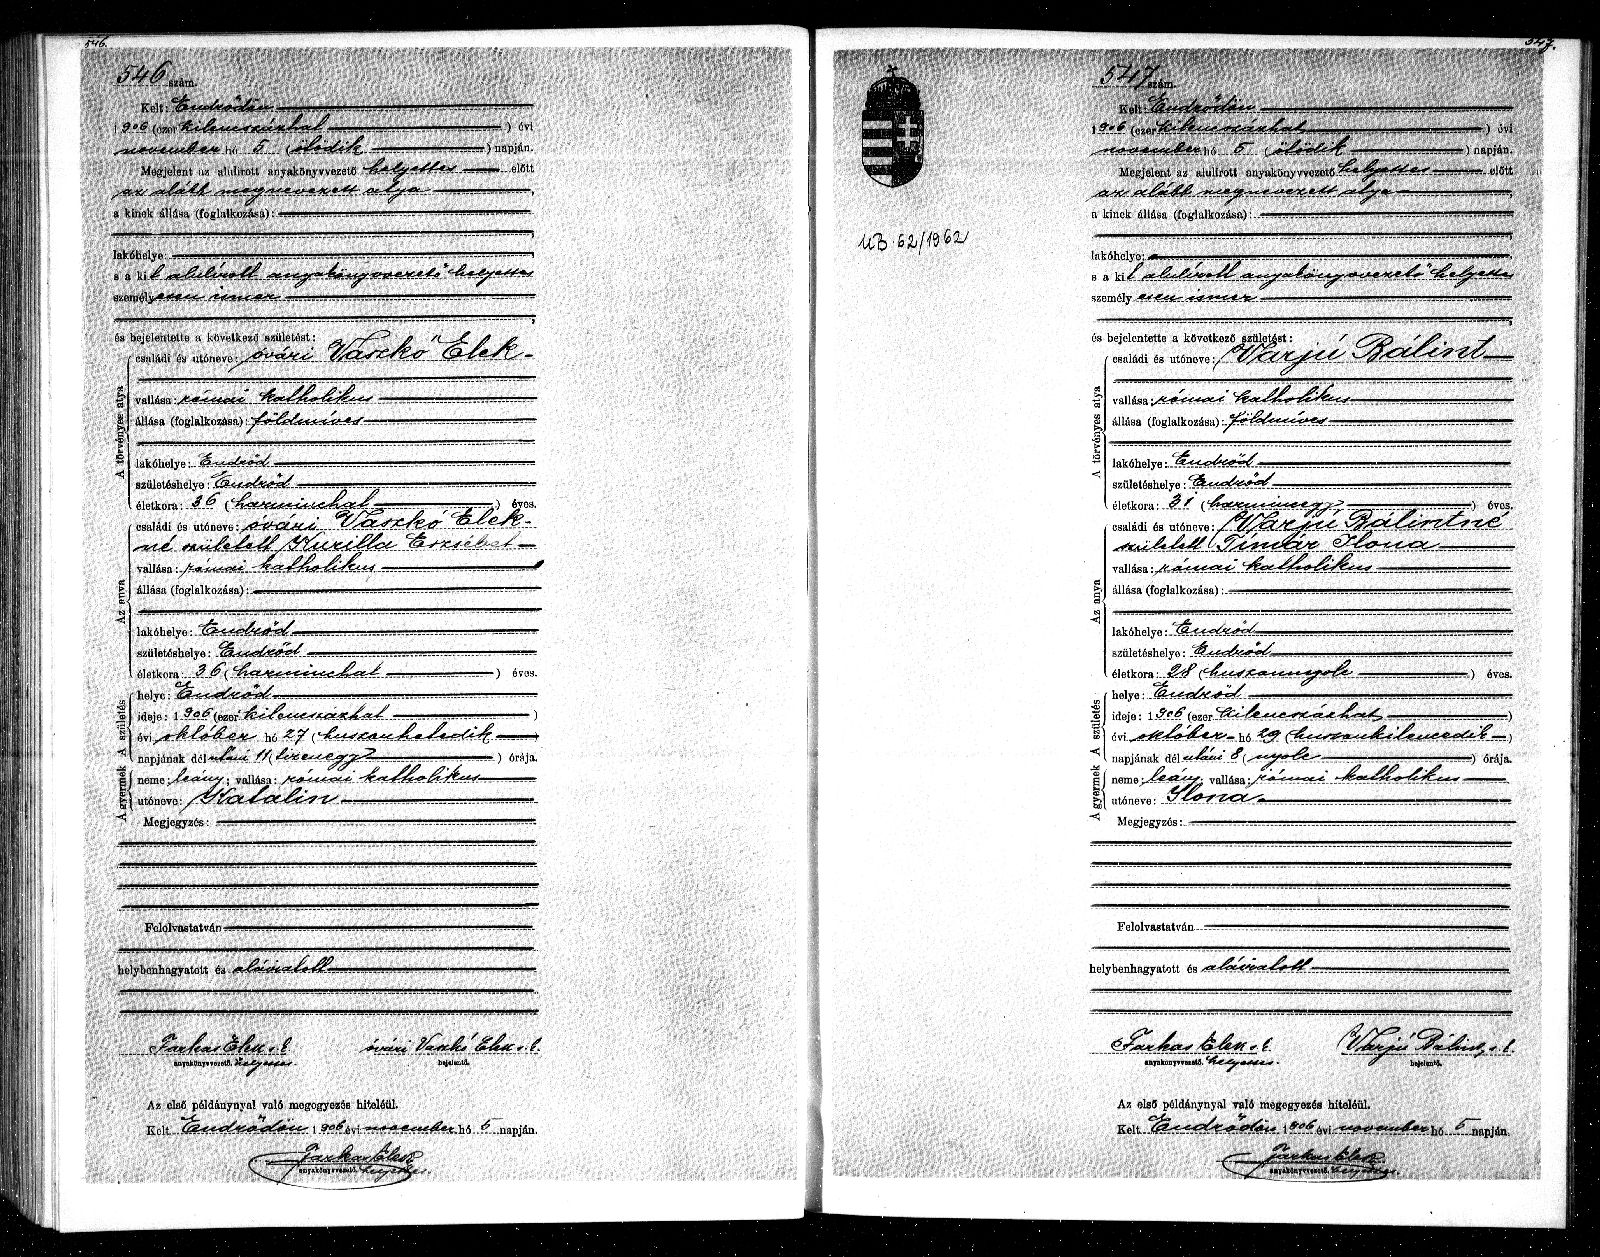 546.
546 szám.
Kelt: Endrődön
1906 (ezer kilenczszázhat) évi
november hó 5 (ötödik) napján.
Megjelent az alulirott anyakönyvvezető helyettes előtt
az alább megnevezett atya,
a kinek állása (foglalkozása):
lakóhelye:
s a kit alulírott anyakönyvvezető helyettes
személyesen ismer
és bejelentette a következő születést:
A törvényes atya
családi és utóneve: óvári Vaszkó Elek
vallása: római katholikus
állása (foglalkozása): földmíves
lakóhelye: Endrőd
születéshelye: Endrőd
életkora: 36 (harminchat) éves.
Az anya
családi és utóneve: óvári Vaszkó Elek-
né született Kurilla Erzsébet
vallása: római katholikus
állása (foglalkozása):
lakóhelye: Endrőd
születéshelye: Endrőd
életkora: 36 (harminchat) éves.
A születés
helye: Endrőd
ideje: 1906 (ezer kilenczszázhat)
évi október hó 27 (huszonhetedik)
napjának délutáni 11 (tizenegy) órája.
A gyermek
neme: leány; vallása: római katholikus
utóneve: Katalin
Megjegyzés:
Felolvastatván
helybenhagyatott és aláiratott
Farkas Elek s. k. óvári Vaszkó Elek s. k.
anyakönyvvezető. helyettes. bejelentő.
Az első példánynyal való megegyezés hiteléül.
Kelt Endrődön 1906 évi november hó 5 napján.
Farkas Elek
anyakönyvvezető. helyettes.
547.
547 szám.
Kelt: Endrődön
1906 (ezer kilenczszázhat) évi
november hó 5 (ötödik) napján.
Megjelent az alulirott anyakönyvvezető helyettes előtt
az alább megnevezett atya
a kinek állása (foglalkozása):
UB. 62/1962
lakóhelye:
s a kit alulírott anyakönyvvezető helyettes
személyesen ismer
és bejelentette a következő születést:
A törvényes atya
családi és utóneve: Varjú Bálint
vallása: római katholikus
állása (foglalkozása): földmíves
lakóhelye: Endrőd
születéshelye: Endrőd
életkora: 31 (harminegy) éves.
Az anya
családi és utóneve: Varjú Bálintné
született Tímár Ilona
vallása: római katholikus
állása (foglalkozása):
lakóhelye: Endrőd
születéshelye: Endrőd
életkora: 28 (huszonnyolc) éves.
A születés
helye: Endrőd
ideje: 1906 (ezer kilenczszázhat)
évi október hó 29 (huszonkilencedik)
napjának délutáni 8 (nyolc) órája.
A gyermek
neme: leány; vallása: római katholikus
utóneve: Ilona
Megjegyzés:
Felolvastatván
helybenhagyatott és aláiratott
Farkas Elek s. k. Varjú Bálint s. k.
anyakönyvvezető. helyettes. bejelentő.
Az első példánynyal való megegyezés hiteléül.
Kelt Endrődön 1906 évi november hó 5 napján.
Farkas Elek
anyakönyvvezető. helyettes.